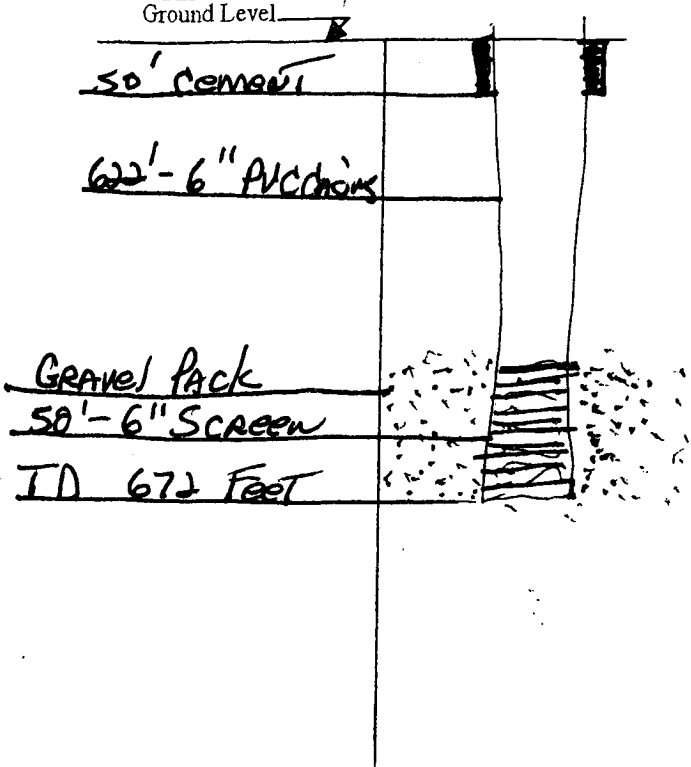 Ground Level
50' Cement
622'-6" PVC
GRAVEL PACK
50'-6" SCREEN
TD 672 FEET